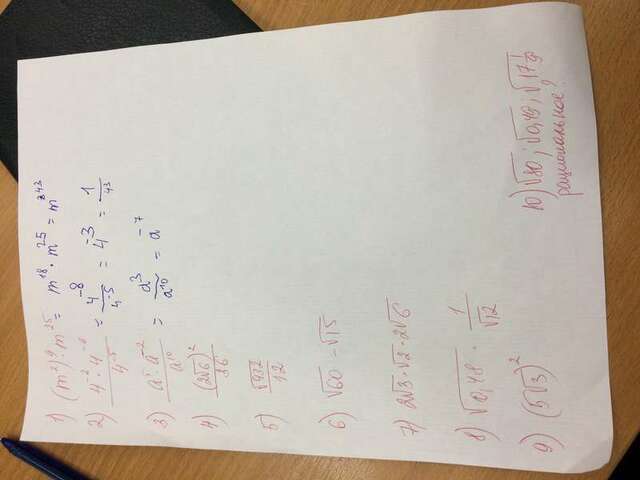 1) (m²)⁹·m²⁵ = m¹⁸·m²⁵ = m⁴³
2) 4⁻²·4⁻⁶/4⁻⁵ = 4⁻⁸/4⁻⁵ = 4⁻³ = 1/4³
= a³/a¹⁰ = a⁻⁷
4) (2√6)²/36
5) √432/12
6) √60 - √15
7) 2√3·√2·2√6
8) √0,48 · 1/√12
9) (5√3)²
10) √80; √0,49;
рациональное?